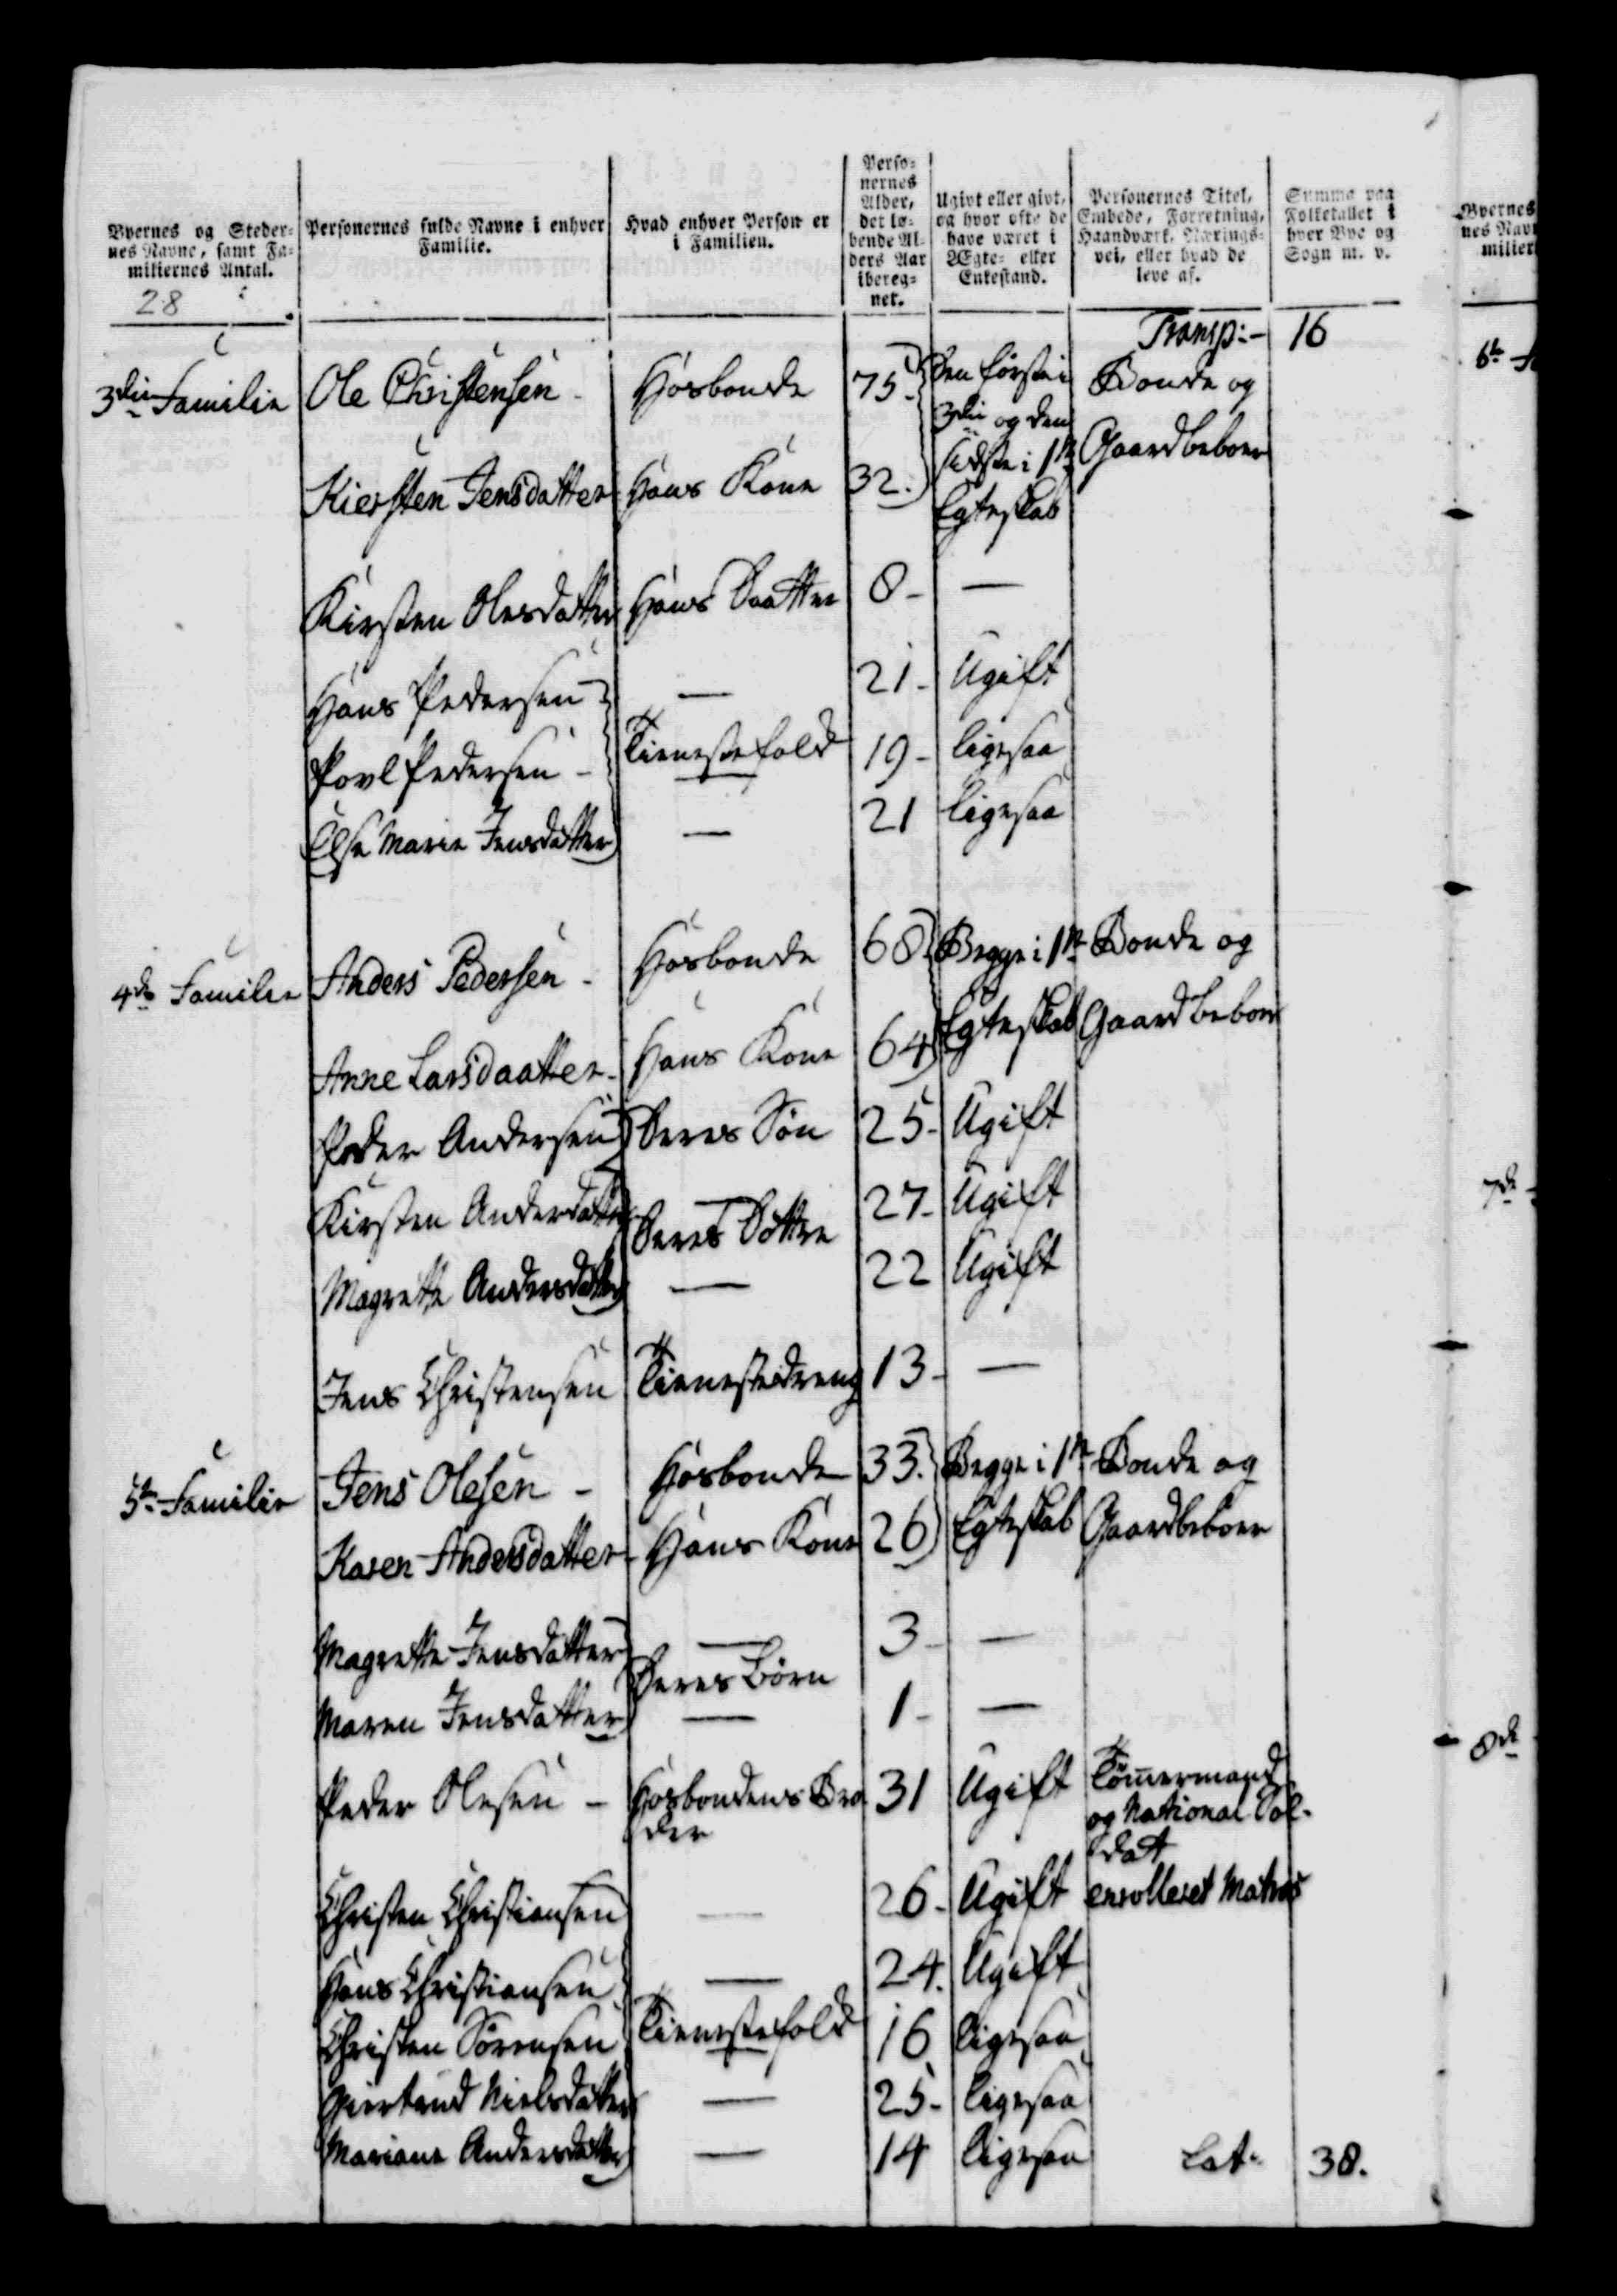 Byernes og Steder-
nes Navne, samt Fa-
miliernes Antal.
Personernes fulde Navne i enhver
Familie.
Hvad enhver Person er
i Familien.
Perso-
nernes
Alder,
det lø-
bende Al-
ders Aar
ibereg-
net.
Ugivt eller givt,
og hvor ofte de
have været i
Ægte- eller
Enkestand.
Personernes Titel,
Embede, Forretning,
Haandværk, Nærings-
vei, eller hvad de
leve af.
Summa paa
Folketallet i
hver Bye og
Sogn m. v.
28
Transp:- 16
3die Familie Ole Christensen - Hosbonde 75. Den første i Bonde og
3die og den
sidste i 1te Gaardbeboer
Kiersten Jensdatter Hans Kone 32. Egteskab
Kirsten Olesdatter Hans Daatter 8 - —
Hans Pedersen — 21 - Ugift
Povl Pedersen - Tienestefolk 19 - ligesaa
Else Marie Jensdatter — 21 ligesaa
4de Familie Anders Pedersen - Hosbonde 68. Begge i 1te Bonde og
Egteskab Gaardbeboer
Anne Larsdaatter - Hans Kone 64
Peder Andersen Deres Søn 25 - Ugift
Kirsten Andersdatter — 27 - Ugift
Deres Døttre
Magrette Andersdatter — 22 Ugift
Jens Christensen Tienestedreng 13 - —
5te Familie Jens Olesen - Hosbonde 33. Begge i 1te Bonde og
Karen Andersdatter - Hans Kone 26 Egteskab Gaardbeboer
Magrette Jensdatter — 3 - —
Deres Børn
Maren Jensdatter — 1 - —
Peder Olesen - Hosbondens Bro 31 Ugift Tömmermand
der og National Sol-
dat
Christen Christiansen — 26 - Ugift enrolleret Matros
Hans Christiansen — 24. Ugift
Christen Sørensen Tienestefolk 16 ligesaa
Giertrud Nielsdatter — 25 - ligesaa
Mariane Andersdatter — 14 ligesaa Lat. 38.
Byernes
nes Nav
milier
6te
7de
8de